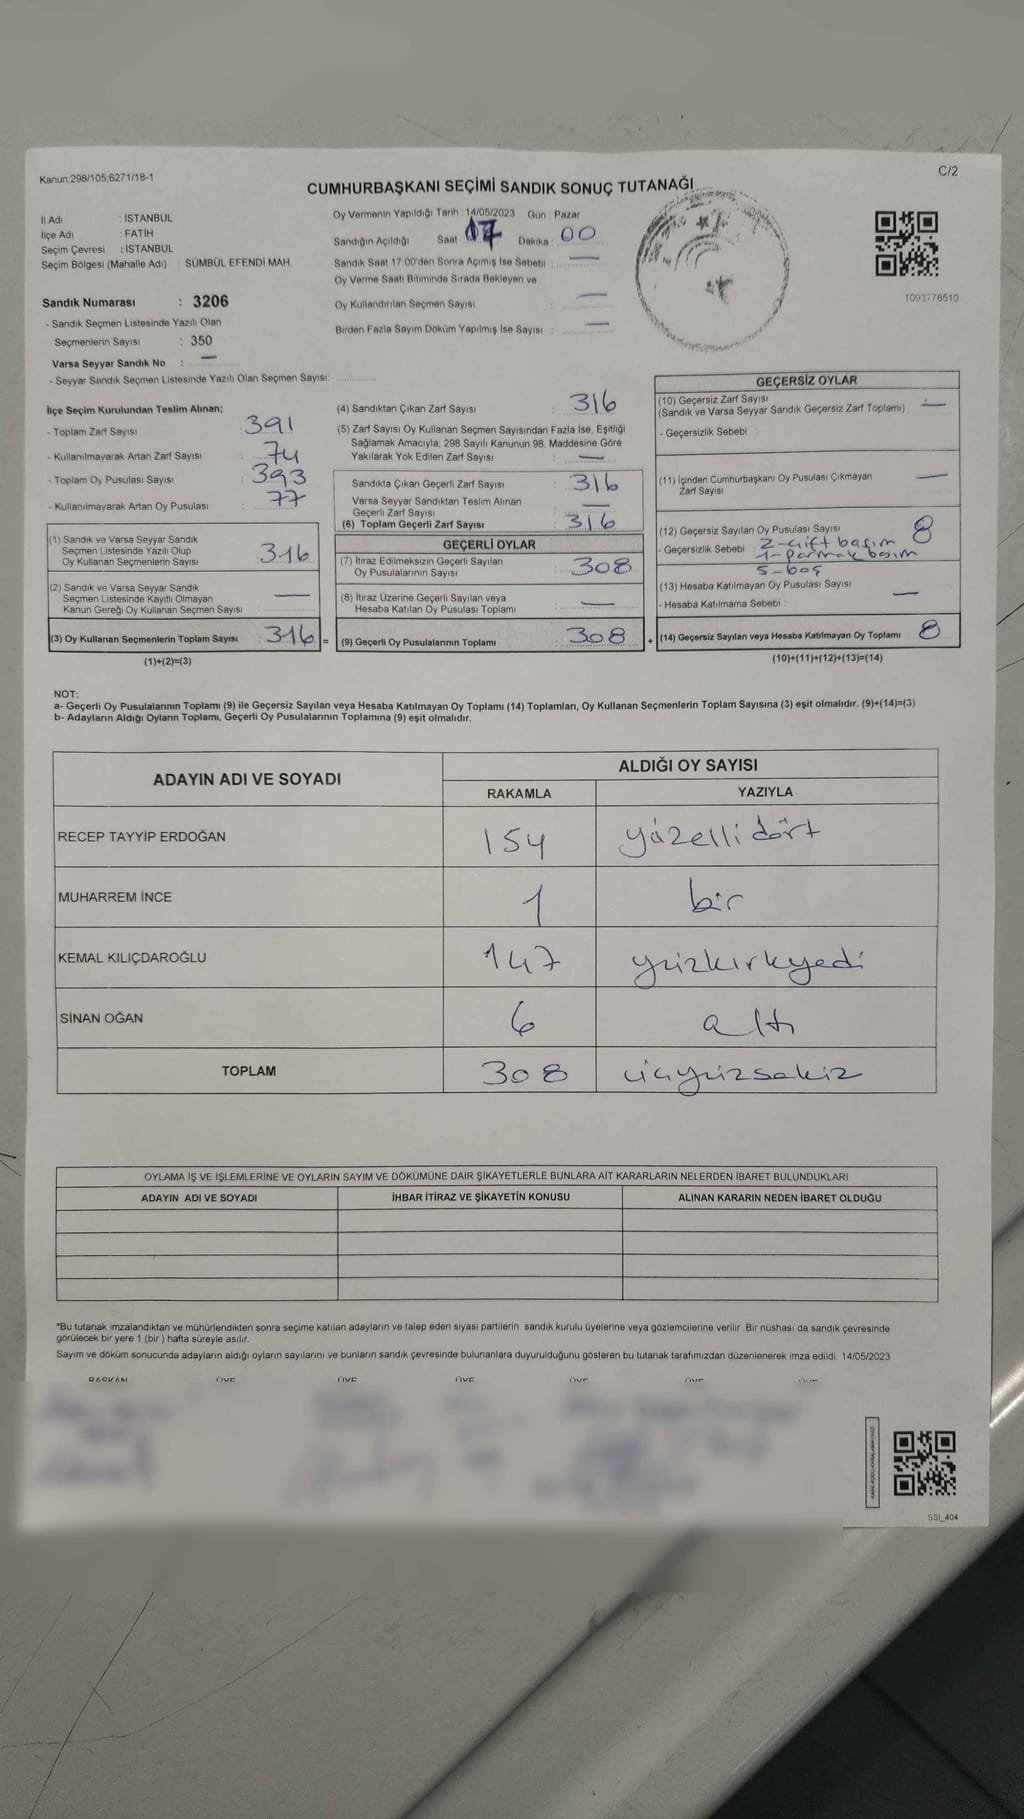 Kanun;298/105,6271/18-1
C/2
CUMHURBAŞKANI SEÇİMİ SANDIK SONUÇ TUTANAĞI
İl Adı : İSTANBUL
İlçe Adı : FATİH
Seçim Çevresi : İSTANBUL
Seçim Bölgesi (Mahalle Adı) SÜMBÜL EFENDİ MAH.
Oy Vermenin Yapıldığı Tarih : 14/05/2023 Gün : Pazar
Sandığın Açıldığı Saat 17 Dakika : 00
Sandık Saat 17.00'den Sonra Açımış İse Sebebi : —
Oy Verme Saati Bitiminde Sırada Bekleyen ve
Oy Kullandırılan Seçmen Sayısı : —
Birden Fazla Sayım Döküm Yapılmış İse Sayısı : —
1093778510
Sandık Numarası : 3206
- Sandık Seçmen Listesinde Yazılı Olan
Seçmenlerin Sayısı : 350
Varsa Seyyar Sandık No : —
- Seyyar Sandık Seçmen Listesinde Yazılı Olan Seçmen Sayısı:
İlçe Seçim Kurulundan Teslim Alınan;
- Toplam Zarf Sayısı : 391
- Kullanılmayarak Artan Zarf Sayısı : 74
- Toplam Oy Pusulası Sayısı : 393
- Kullanılmayarak Artan Oy Pusulası : 77
(1) Sandık ve Varsa Seyyar Sandık
Seçmen Listesinde Yazılı Olup
Oy Kullanan Seçmenlerin Sayısı : 316
(2) Sandık ve Varsa Seyyar Sandık
Seçmen Listesinde Kayıtlı Olmayan
Kanun Gereği Oy Kullanan Seçmen Sayısı : —
(3) Oy Kullanan Seçmenlerin Toplam Sayısı : 316 =
(1)+(2)=(3)
(4) Sandıktan Çıkan Zarf Sayısı : 316
(5) Zarf Sayısı Oy Kullanan Seçmen Sayısından Fazla İse, Eşitliği
Sağlamak Amacıyla, 298 Sayılı Kanunun 98. Maddesine Göre
Yakılarak Yok Edilen Zarf Sayısı : —
Sandıkta Çıkan Geçerli Zarf Sayısı : 316
Varsa Seyyar Sandıktan Teslim Alınan
Geçerli Zarf Sayısı : —
(6) Toplam Geçerli Zarf Sayısı : 316
GEÇERLİ OYLAR
(7) İtiraz Edilmeksizin Geçerli Sayılan
Oy Pusulalarının Sayısı : 308
(8) İtiraz Üzerine Geçerli Sayılan veya
Hesaba Katılan Oy Pusulası Toplamı : —
(9) Geçerli Oy Pusulalarının Toplamı : 308 +
GEÇERSİZ OYLAR
(10) Geçersiz Zarf Sayısı : —
(Sandık ve Varsa Seyyar Sandık Geçersiz Zarf Toplamı)
- Geçersizlik Sebebi :
(11) İçinden Cumhurbaşkanı Oy Pusulası Çıkmayan
Zarf Sayısı : —
(12) Geçersiz Sayılan Oy Pusulası Sayısı : 8
- Geçersizlik Sebebi : 2-çift basım
1-parmak basım
5-boş
(13) Hesaba Katılmayan Oy Pusulası Sayısı : —
- Hesaba Katılmama Sebebi :
(14) Geçersiz Sayılan veya Hesaba Katılmayan Oy Toplamı : 8
(10)+(11)+(12)+(13)=(14)
NOT:
a- Geçerli Oy Pusulalarının Toplamı (9) ile Geçersiz Sayılan veya Hesaba Katılmayan Oy Toplamı (14) Toplamları, Oy Kullanan Seçmenlerin Toplam Sayısına (3) eşit olmalıdır. (9)+(14)=(3)
b- Adayların Aldığı Oyların Toplamı, Geçerli Oy Pusulalarının Toplamına (9) eşit olmalıdır.
ADAYIN ADI VE SOYADI ALDIĞI OY SAYISI
RAKAMLA YAZIYLA
RECEP TAYYİP ERDOĞAN 154 yüzellidört
MUHARREM İNCE 1 bir
KEMAL KILIÇDAROĞLU 147 yüzkırkyedi
SİNAN OĞAN 6 altı
TOPLAM 308 üçyüzsekiz
OYLAMA İŞ VE İŞLEMLERİNE VE OYLARIN SAYIM VE DÖKÜMÜNE DAİR ŞİKAYETLERLE BUNLARA AİT KARARLARIN NELERDEN İBARET BULUNDUKLARI
ADAYIN ADI VE SOYADI İHBAR İTİRAZ VE ŞİKAYETİN KONUSU ALINAN KARARIN NEDEN İBARET OLDUĞU
*Bu tutanak imzalandıktan ve mühürlendikten sonra seçime katılan adayların ve talep eden siyasi partilerin sandık kurulu üyelerine veya gözlemcilerine verilir. Bir nüshası da sandık çevresinde
görülecek bir yere 1 (bir ) hafta süreyle asılır.
Sayım ve döküm sonucunda adayların aldığı oyların sayılarını ve bunların sandık çevresinde bulunanlara duyurulduğunu gösteren bu tutanak tarafımızdan düzenlenerek imza edildi. 14/05/2023
BAŞKAN ÜYE ÜYE ÜYE ÜYE ÜYE ÜYE
SSI_404